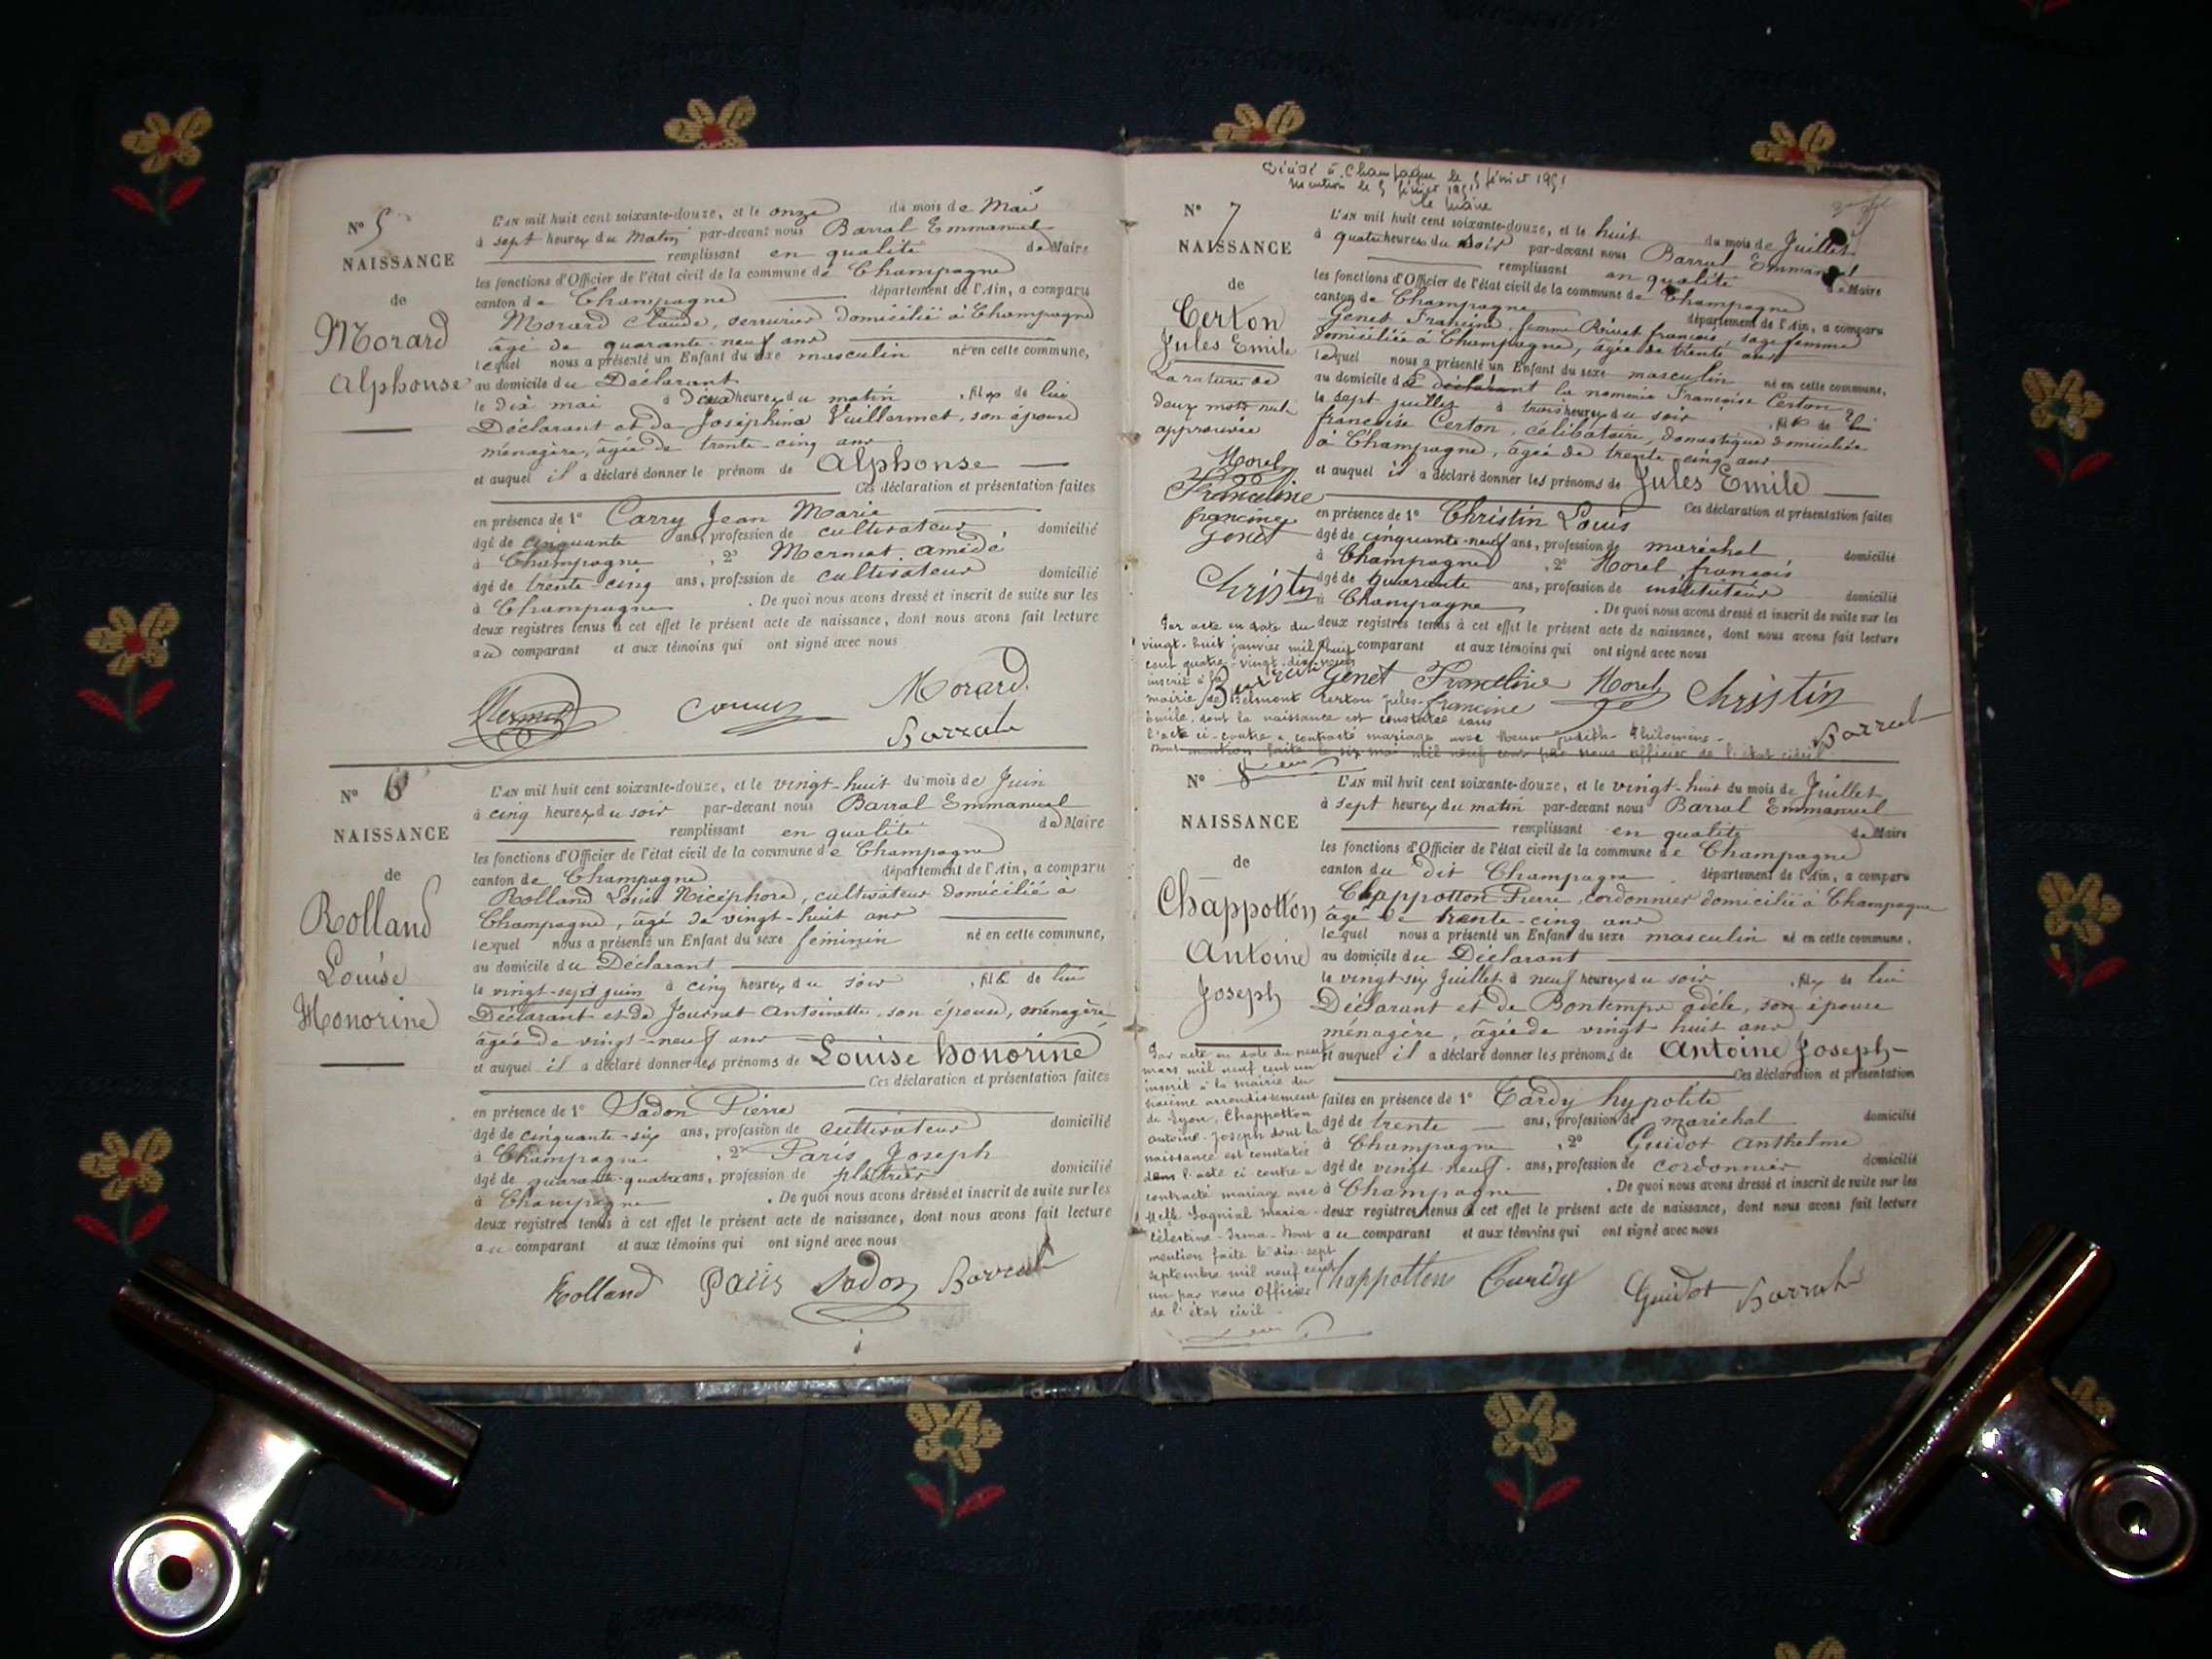 N° 5
NAISSANCE
de
Morard
Alphonse
L'AN mil huit cent soixante-douze, et le onze du mois de Mai
à sept heures du Matin par-devant nous Barral Emmanuel
remplissant en qualité de Maire
les fonctions d'Officier de l'état civil de la commune de Champagne
canton de Champagne département de l'Ain, a comparu
Morard Claude, serrurier domicilié à Champagne
âgé de quarante-neuf ans
lequel nous a présenté un Enfant du sexe masculin né en cette commune,
au domicile du Déclarant
le dix mai à deux heures du matin, fils de lui
Déclarant et de Joséphine Vuillermet, son épouse
ménagère, âgée de trente-cinq ans
et auquel il a déclaré donner le prénom de Alphonse
Ces déclaration et présentation faites
en présence de 1° Carry Jean Marie
âgé de cinquante ans, profession de cultivateur domicilié
à Champagne, 2° Mermet Amédé
âgé de trente-cinq ans, profession de cultivateur domicilié
à Champagne. De quoi nous avons dressé et inscrit de suite sur les
deux registres tenus à cet effet le présent acte de naissance, dont nous avons fait lecture
au comparant et aux témoins qui ont signé avec nous
Morard
Mermet
Barral
N° 6
NAISSANCE
de
Rolland
Louise
Honorine
L'AN mil huit cent soixante-douze, et le vingt-huit du mois de Juin
à cinq heures du soir par-devant nous Barral Emmanuel
remplissant en qualité de Maire
les fonctions d'Officier de l'état civil de la commune de Champagne
canton de Champagne département de l'Ain, a comparu
Rolland Louis Nicéphore, cultivateur domicilié à
Champagne, âgé de vingt-huit ans
lequel nous a présenté un Enfant du sexe féminin né en cette commune,
au domicile du Déclarant
le vingt-sept juin à cinq heures du soir, fille de lui
Déclarant et de Journet Antoinette, son épouse, ménagère
âgée de vingt-neuf ans
et auquel il a déclaré donner les prénoms de Louise honorine
Ces déclaration et présentation faites
en présence de 1° Sadon Pierre
âgé de cinquante-six ans, profession de cultivateur domicilié
à Champagne, 2° Paris Joseph
âgé de quarante-quatre ans, profession de plâtrier domicilié
à Champagne. De quoi nous avons dressé et inscrit de suite sur les
deux registres tenus à cet effet le présent acte de naissance, dont nous avons fait lecture
au comparant et aux témoins qui ont signé avec nous
Rolland Paris Sadon Barral
Décédé à Champagne le 5 février 1951
Mention le 5 février 1951
le Maire
N° 7
NAISSANCE
de
Certon
Jules Emile
La rature de
deux mots nuls
approuvée
Morel
Franceline
francine
Genet
Christin
L'AN mil huit cent soixante-douze, et le huit du mois de Juillet
à quatre heures du soir par-devant nous Barral Emmanuel
remplissant en qualité de Maire
les fonctions d'Officier de l'état civil de la commune de Champagne
canton de Champagne département de l'Ain, a comparu
Genet Francine, femme Rivet françois, sage femme
domiciliée à Champagne, âgée de trente ans
lequel nous a présenté un Enfant du sexe masculin né en cette commune,
au domicile de déclarant la nommée Françoise Certon
le sept juillet à trois heures du soir, fils de
françoise Certon, célibataire, domestique domiciliée
à Champagne, âgée de trente-cinq ans
et auquel il a déclaré donner les prénoms de Jules Emile
Ces déclaration et présentation faites
en présence de 1° Christin Louis
âgé de cinquante-neuf ans, profession de maréchal domicilié
à Champagne, 2° Morel françois
âgé de quarante ans, profession de instituteur domicilié
à Champagne. De quoi nous avons dressé et inscrit de suite sur les
deux registres tenus à cet effet le présent acte de naissance, dont nous avons fait lecture
comparant et aux témoins qui ont signé avec nous
Genet Franceline Morel Christin
francine
Barral
Par acte en date du
vingt-huit janvier mil huit
cent quatre-vingt-dix-neuf
inscrit à la
mairie de Belmont Certon Jules-
Emile, dont la naissance est constatée dans
l'acte ci-contre a contracté mariage avec Judith-Philomène.
Dont mention faite le six mai mil neuf cent par nous officier de l'état civil
N° 8
NAISSANCE
de
Chappotton
Antoine
Joseph
L'AN mil huit cent soixante-douze, et le vingt-huit du mois de Juillet
à sept heures du matin par-devant nous Barral Emmanuel
remplissant en qualité de Maire
les fonctions d'Officier de l'état civil de la commune de Champagne
canton du dit Champagne département de l'Ain, a comparu
Chappotton Pierre, cordonnier domicilié à Champagne
âgé de trente-cinq ans
lequel nous a présenté un Enfant du sexe masculin né en cette commune,
au domicile du Déclarant
le vingt-six Juillet à neuf heures du soir, fils de lui
Déclarant et de Bontemps adèle, son épouse
ménagère, âgée de vingt huit ans
et auquel il a déclaré donner les prénoms de Antoine Joseph
Ces déclaration et présentation
faites en présence de 1° Tardy hypolite
âgé de trente ans, profession de maréchal domicilié
à Champagne, 2° Guidot Anthelme
âgé de vingt neuf ans, profession de cordonnier domicilié
à Champagne. De quoi nous avons dressé et inscrit de suite sur les
deux registres tenus à cet effet le présent acte de naissance, dont nous avons fait lecture
au comparant et aux témoins qui ont signé avec nous
Chappotton Tardy Guidot Barral
Par acte en date du neuf
mars mil neuf cent un
inscrit à la mairie du
sixième arrondissement
de Lyon, Chappotton
Antoine-Joseph dont la
naissance est constatée
dans l'acte ci contre a
contracté mariage avec
Melle Maria-
Célestine-Irma. Dont
mention faite le dix-sept
septembre mil neuf cent
un par nous Officier
de l'état civil.